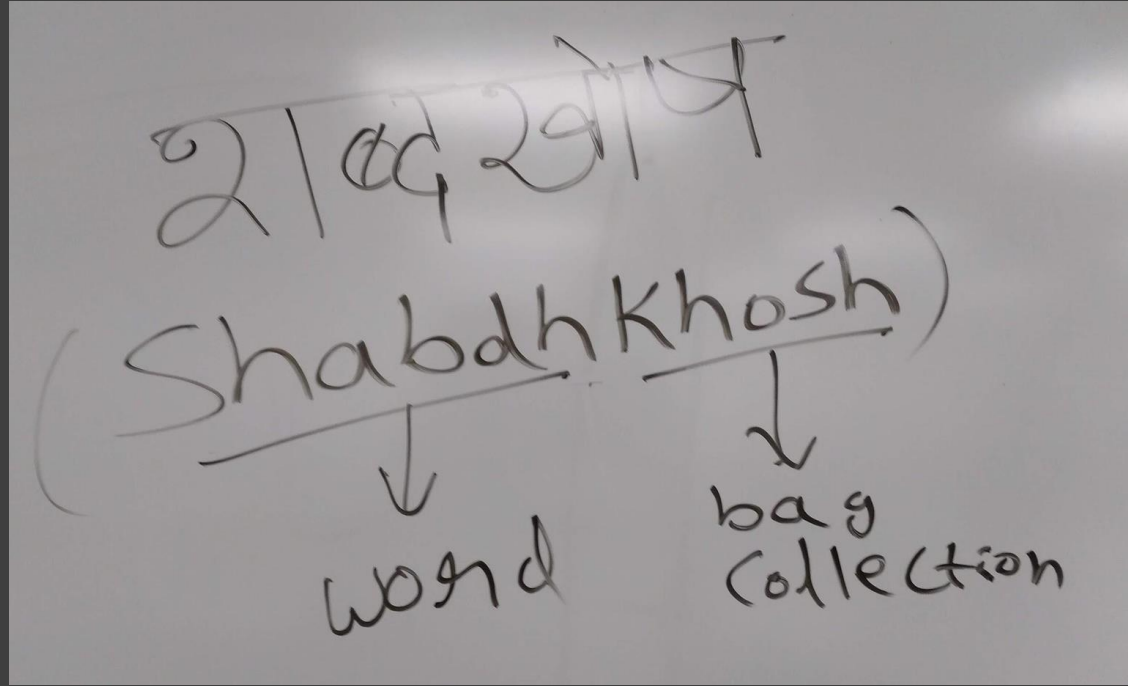 शब्दखोष
(Shabdhkhosh)
word
bag
Collection